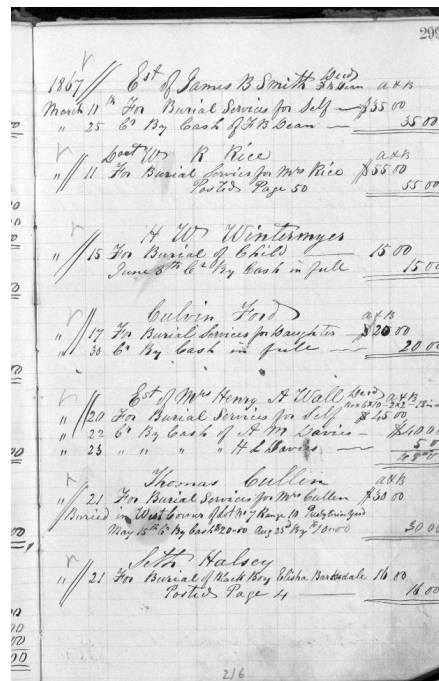 299
1867 // Est of James B Smith Decd a & B
March 11th For Burial Services for Self — $35 00
" 25 Cr By Cash of F B Dean — 35 00
W R Rice a & B
" // 11 For Burial Services for Mrs Rice $55 00
Posted Page 50 55 00
H W Wintermyer
" // 15 For Burial of Child — 15 00
June 5th Cr By Cash in full 15 00
Culvin Ford a & B
" // 17 For Burial Services for Daughter — $20 00
" 30 Cr By Cash in full — 20 00
Est of Mrs Henry A Wall Decd a & B
" // 20 For Burial Services for Self $45 00
" 22 Cr By Cash of A M Davies — $40 00
" 23 " " " " H L Davies — 5 0
Thomas Cullen a & B
" // 21 For Burial Services for Mrs Cullen $30 00
Buried in West Corner of Lot No 7 Range 10 Presbyterian Yard
May 15th Cr By Cash $20-00 Aug 23d By $10-00 30 00
Seth Halsey
" // 21 For Burial of Black Boy Elisha Barksdale 16 00
Posted Page 4 — 16 00
216